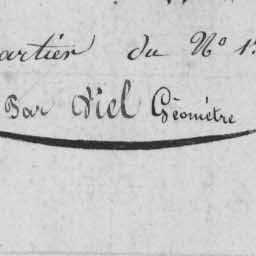 artier du N° 1
Par Viel Géomètre